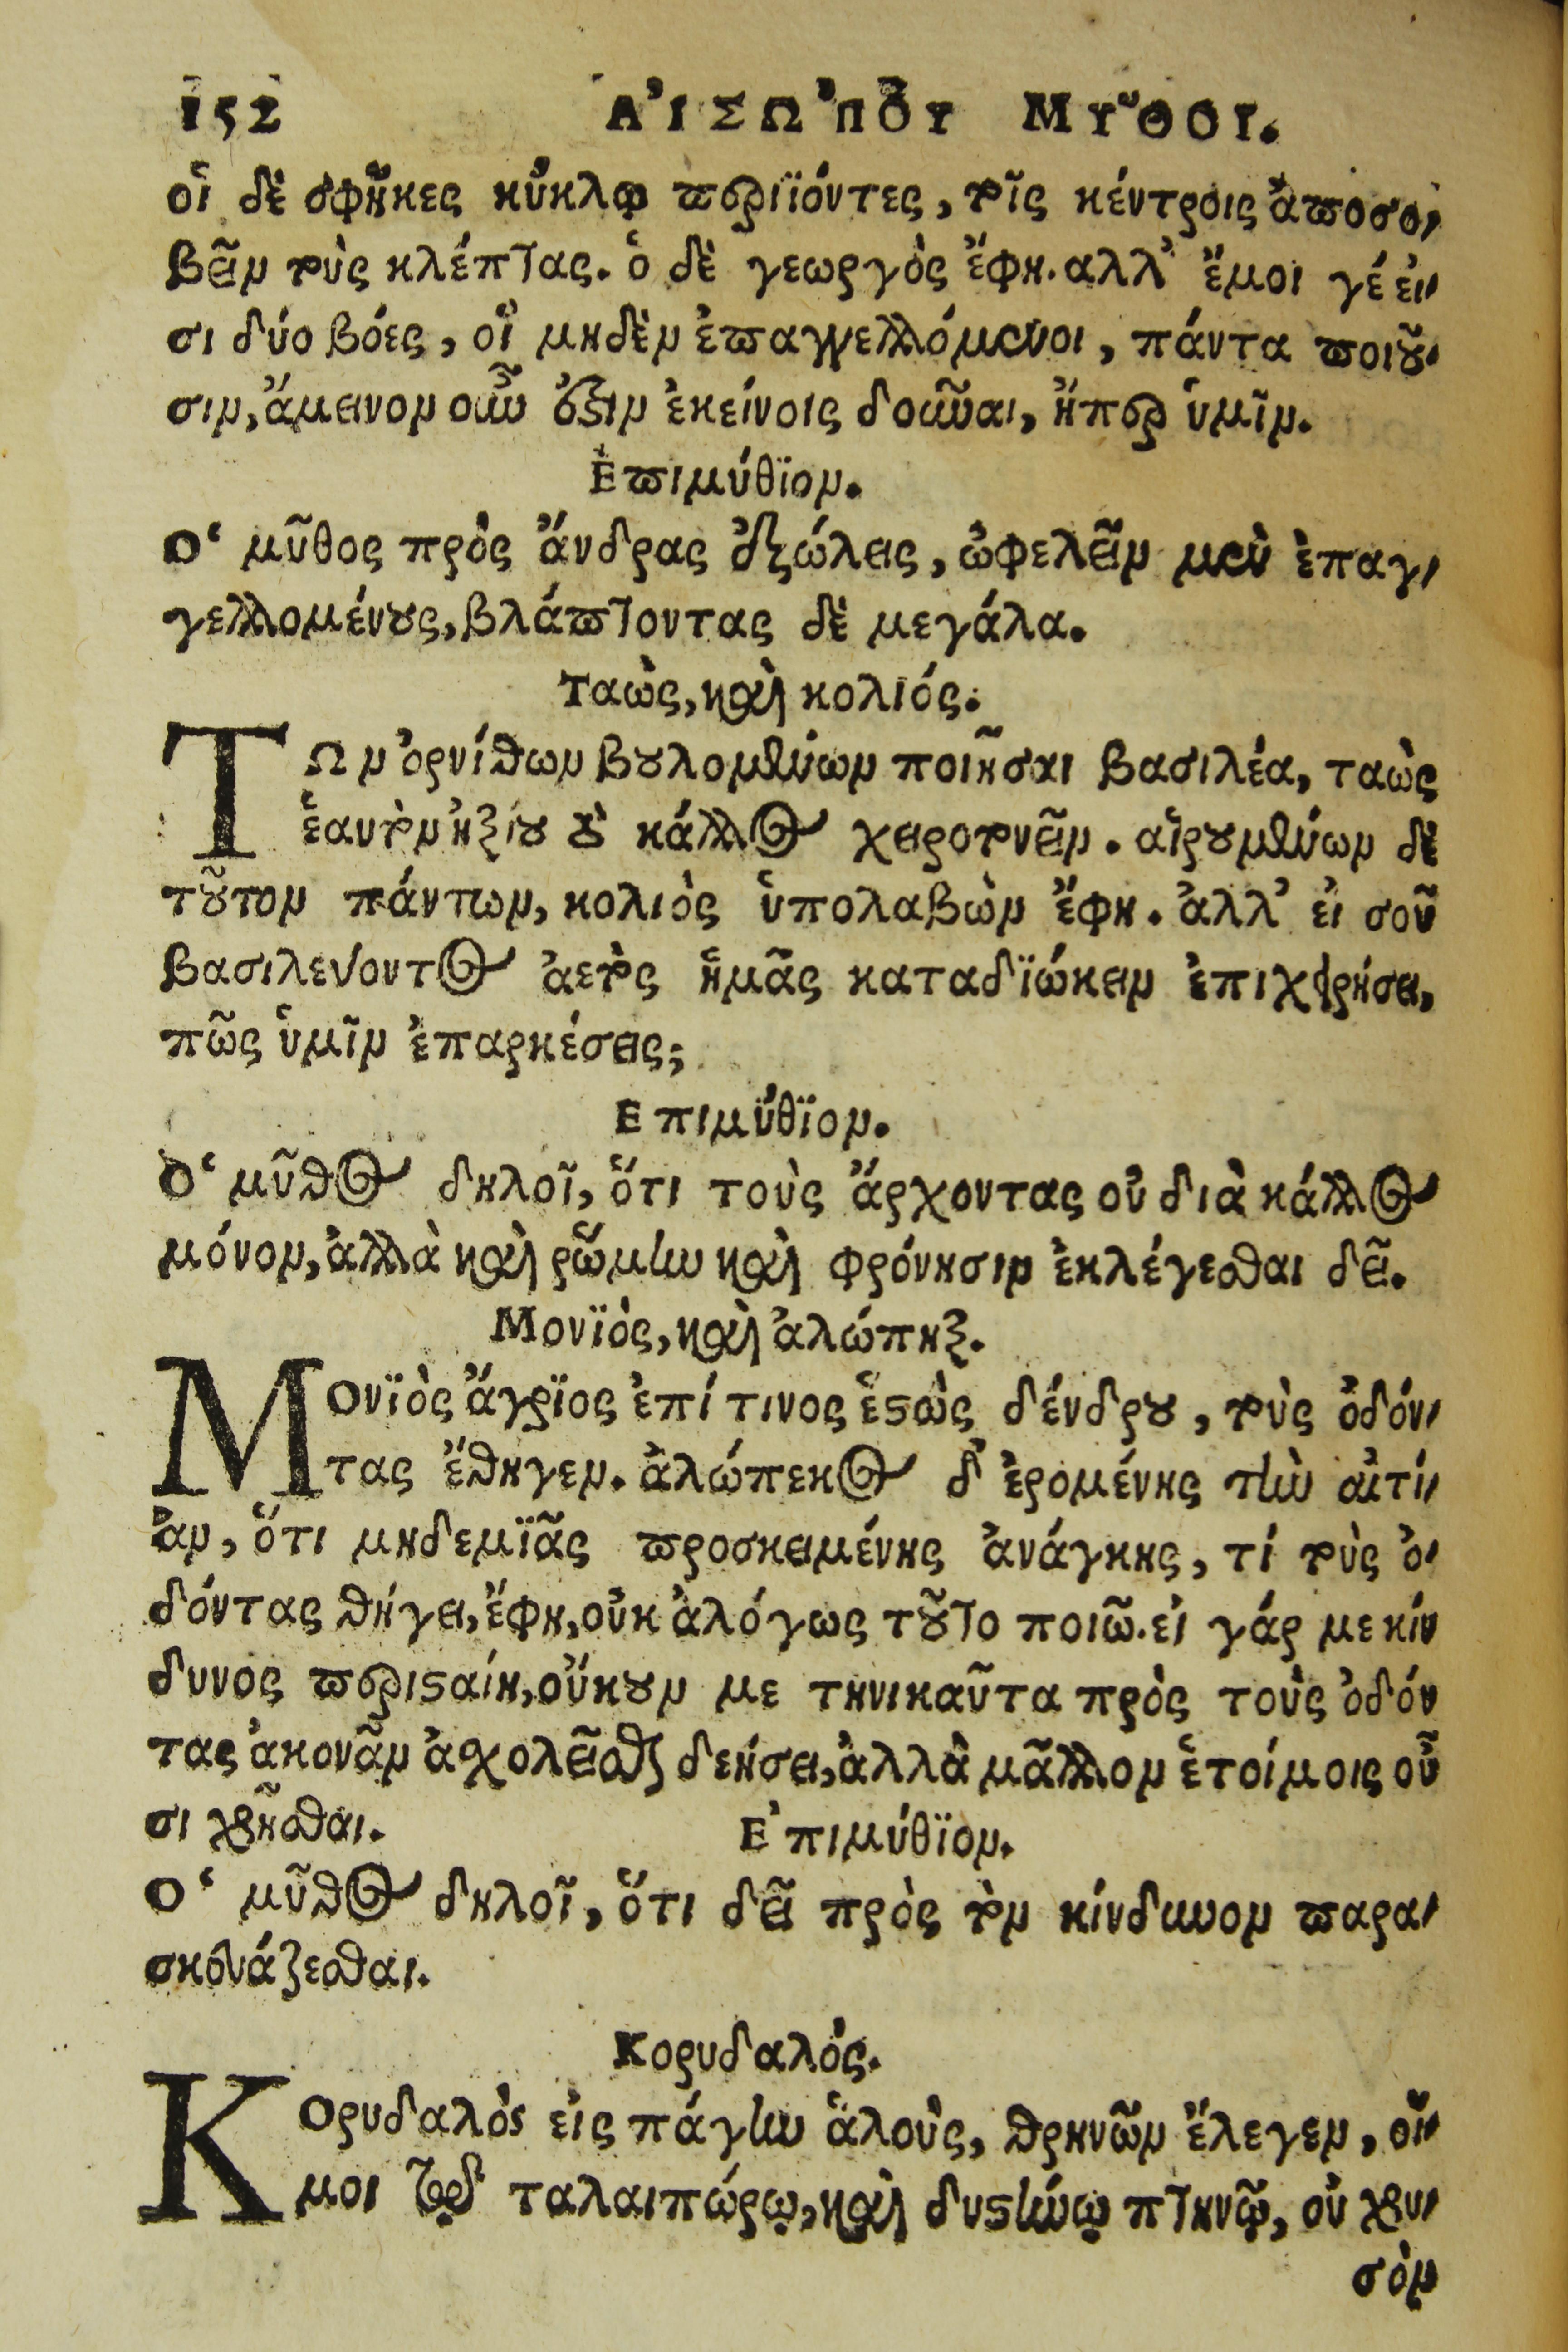 152 ΑἸΣΩΠΟΥ ΜΥ͂ΘΟΙ.
οἱ δὲ σφῆκες κύκλῳ περιϊόντες, τοῖς κέντροις ἀποσο-
βεῖν τοὺς κλέπτας. ὁ δὲ γεωργὸς ἔφη. αλλ' ἔμοι γέ εἰ-
σι δύο βόες, οἳ μηδὲν ἐπαγγελλόμενοι, πάντα ποιοῦ-
σιν, ἄμεινον οὖν ὅξιν ἐκείνοις δοῦναι, ἤπερ ὑμῖν.
Ἐπιμύθϊον.
Ὁ μῦθος πρὸς ἄνδρας ἐξώλεις, ὠφελεῖν μὲν ἐπαγ-
γελλομένους, βλάπτοντας δὲ μεγάλα.
Ταὼς, καὶ κολιός.
ΤΩν ὀρνίθων βουλομένων ποιῆσαι βασιλέα, ταὼς
ἑαυτὸν ἠξίου διὰ κάλλος χειροτονεῖν. αἱρουμένων δὲ
τοῦτον πάντων, κολιὸς ὑπολαβὼν ἔφη. ἀλλ' εἰ σοῦ
βασιλεύοντος ἀετὸς ἡμᾶς καταδϊώκειν ἐπιχειρήσει,
πῶς ὑμῖν ἐπαρκέσεις;
Επιμύθϊον.
Ὁ μῦθος δηλοῖ, ὅτι τοὺς ἄρχοντας οὐ διὰ κάλλος
μόνον, ἀλλὰ καὶ ῥώμην καὶ φρόνησιν ἐκλέγεσθαι δεῖ.
Μονϊὸς, καὶ ἀλώπηξ.
ΜΟνϊὸς ἄγρϊος ἐπί τινος ἑστὼς δένδρου, τοὺς ὀδόν-
τας ἔθηγεν. ἀλώπεκος δ' ἐρομένης τὴν αἰτί-
αν, ὅτι μηδεμϊᾶς προσκειμένης ἀνάγκης, τί τοὺς ὀ-
δόντας θήγει, ἔφη, οὐκ ἀλόγως τοῦτο ποιῶ. εἰ γάρ με κίν
δυνος περισταίη, οὔκουν με τηνικαῦτα πρὸς τοὺς ὀδόν
τας ἀκονᾶν ἀσχολεῖσθαι δεήσει, ἀλλὰ μᾶλλον ἑτοίμοις οὖ
σι χρῆσθαι. Ἐπιμύθϊον.
Ὁ μῦθος δηλοῖ, ὅτι δεῖ πρὸς τὸν κίνδυνον παρα-
σκευάζεσθαι.
Κορυδαλός.
ΚΟρυδαλὸς εἰς πάγην ἁλοὺς, θρηνῶν ἔλεγεν, οἴ-
μοι τῷ ταλαιπώρῳ, καὶ δυστήνῳ πτηνῷ, οὐ χρυ-
σὸν